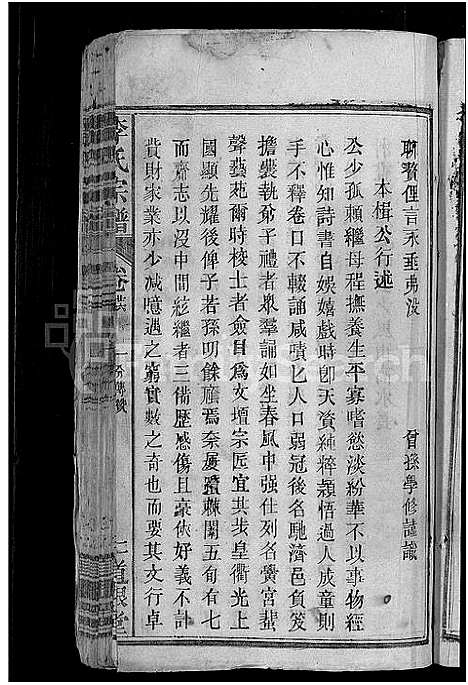 聊贅俚言永垂弗沒
曾孫學修謹識
本楫公行述
公少孤賴繼母程撫養生平寡嗜慾淡紛華不以事物經
心惟知詩書自娛嬉戲時卽天資純粹頴悟過人成童則
手不釋卷口不輟誦咸嘖乙人口弱冠後名馳濟邑負笈
擔簦執弟子禮者衆羣誦如坐春風中强仕列名黌宮蜚
聲藝苑爾時棱士者僉目爲文壇宗匠宜其步皇衢光上
國顯先耀後俾子若孫明餘廕焉奈屢躓棘闈五旬有七
而齎志以沒中間絃繼者三備歷感傷且豪俠好義不計
貲財家業亦少減噫遇之窮實數之奇也而要其文行卓
李氏宗譜
卷
一